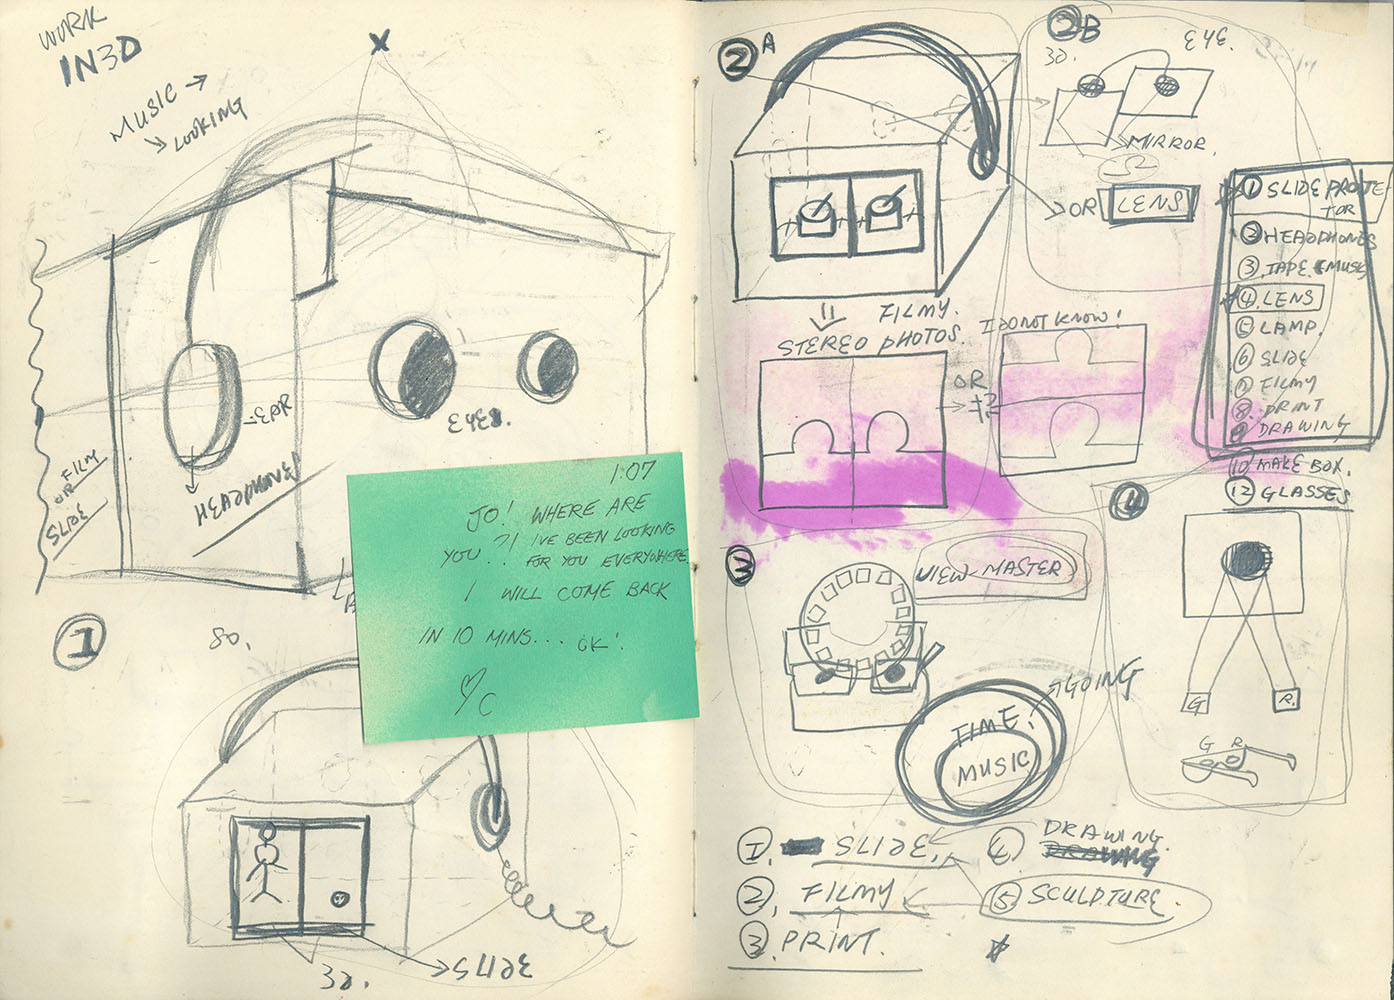 WORK
IN 3D
MUSIC →
↘ LOOKING
EAR
EYES.
HEADPHONE
FILM
OR
SLIDE
1:07
JO! WHERE ARE
YOU?! I'VE BEEN LOOKING
FOR YOU EVERYWHERE
I WILL COME BACK
IN 10 MINS... OK!
♡C
①
80.
3D.
②A
FILMY.
STEREO PHOTOS.
OR
I DO NOT KNOW!
②B
3D.
EYE.
MIRROR.
OR LENS
① SLIDE PROJEC
TOR
② HEADPHONES
③ TAPE (MUSIC
④ LENS
⑤ LAMP.
⑥ SLIDE
⑦ FILMY
⑧ PRINT
⑨ DRAWING
⑩ MAKE BOX.
⑫ GLASSES
③
VIEW-MASTER
→GOING
TIME!
MUSIC
④
G R.
G R
①. SLIDE.
②. FILMY
③. PRINT.
④ DRAWING.
DRAWING
⑤ SCULPTURE